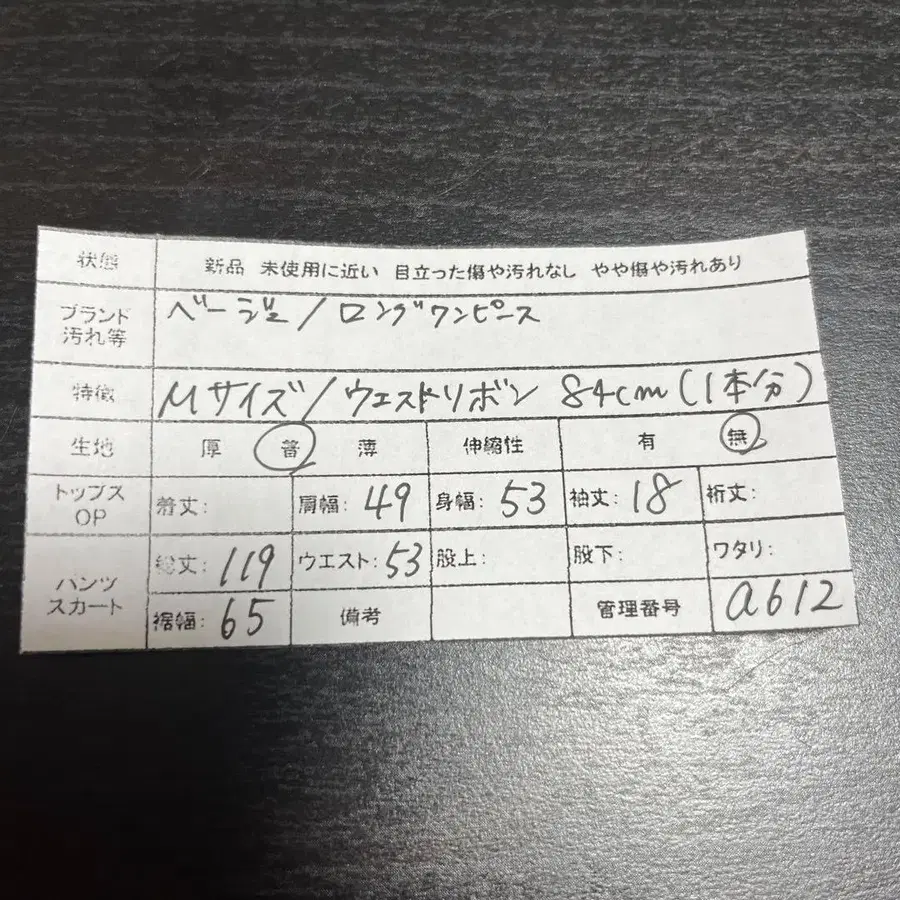 状態 新品 未使用に近い 目立った傷や汚れなし やや傷や汚れあり
ブランド
汚れ等 ベージュ/ロングワンピース
特徴 Mサイズ/ウエストリボン 84cm(1本分)
生地 厚 普 薄 伸縮性 有 無
トップス
OP 着丈: 肩幅: 49 身幅: 53 袖丈: 18 裄丈:
パンツ
スカート 総丈: 119 ウエスト: 53 股上: 股下: ワタリ:
裾幅: 65 備考 管理番号 a612